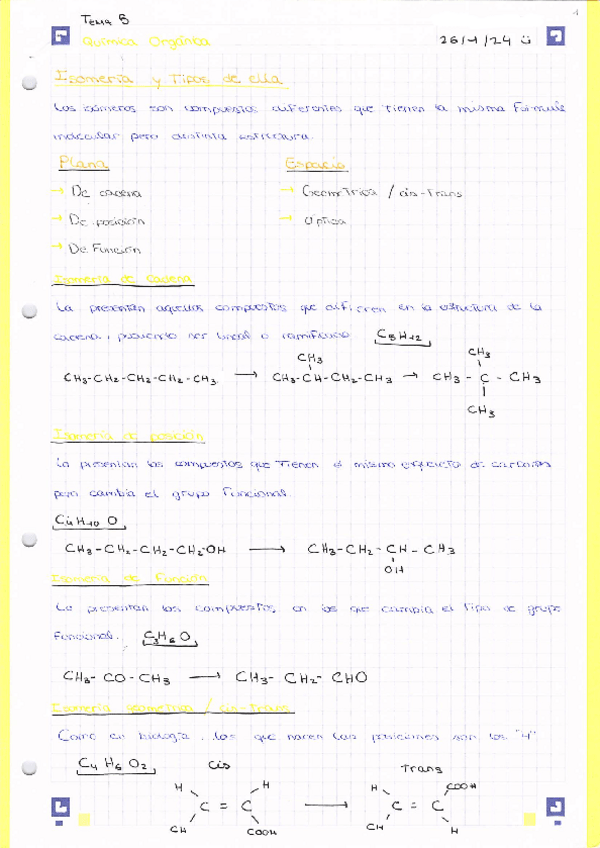 Tema 5
Química Orgánica 26/4/24 ü
Isomería y Tipos de ella
Los isómeros son compuestos diferentes que tienen la misma fórmula
molecular pero distinta estructura.
Plana Espacio
→ De cadena → Geométrica / cis-Trans
→ De posición → Óptica
→ De Función
Isomería de Cadena
La presentan aquellos compuestos que difieren en la estructura de la
cadena, pudiendo ser lineal o ramificada C5H12
CH3 CH3
CH3-CH2-CH2-CH2-CH3 → CH3-CH-CH2-CH3 → CH3 - C - CH3
CH3
Isomería de posición
La presentan los compuestos que Tienen el mismo esqueleto de carbonos
pero cambia el grupo Funcional.
C4H10 O
CH3-CH2-CH2-CH2-OH → CH3-CH2-CH-CH3
OH
Isomería de Función
La presentan los compuestos en los que cambia el Tipo de grupo
Funcional. C3H6O
CH3-CO-CH3 → CH3-CH2-CHO
Isomería geométrica / cis-Trans
Como en biología, los que hacen las posiciones son los "4"
C4H6O2 Cis Trans
H H H COOH
C = C → C = C
CH COOH CH H